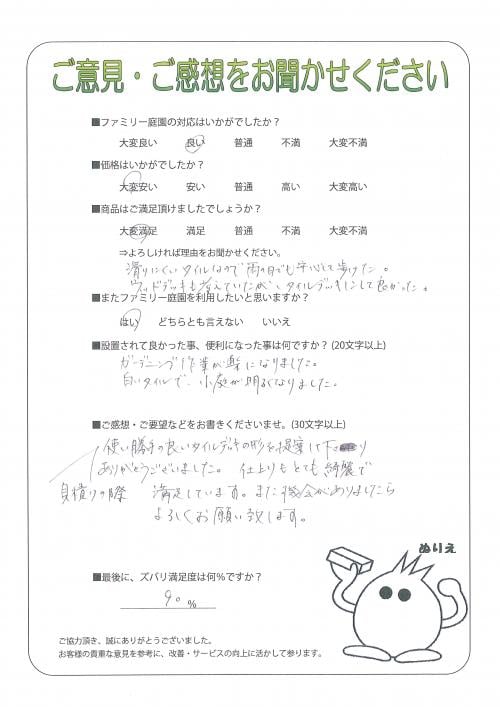 ご意見・ご感想をお聞かせください
■ファミリー庭園の対応はいかがでしたか？
大変良い 良い 普通 不満 大変不満
■価格はいかがでしたか？
大変安い 安い 普通 高い 大変高い
■商品はご満足頂けましたでしょうか？
大変満足 満足 普通 不満 大変不満
⇒よろしければ理由をお聞かせください。
滑りにくいタイルなので雨の日でも安心して歩けた。
ウッドデッキも考えていたが、タイルデッキにして良かった。
■またファミリー庭園を利用したいと思いますか？
はい どちらとも言えない いいえ
■設置されて良かった事、便利になった事は何ですか？(20文字以上)
ガーデニング作業が楽になりました。
白いタイルで、小庭が明るくなりました。
■ご感想・ご要望などをお書きくださいませ。(30文字以上)
使い勝手の良いタイルデッキの形を提案して下さり
ありがとうございました。仕上りもとても綺麗で
見積りの際 満足しています。また機会がありましたら
よろしくお願い致します。
ぬりえ
■最後に、ズバリ満足度は何%ですか？
90 %
ご協力頂き、誠にありがとうございました。
お客様の貴重な意見を参考に、改善・サービスの向上に活かして参ります。